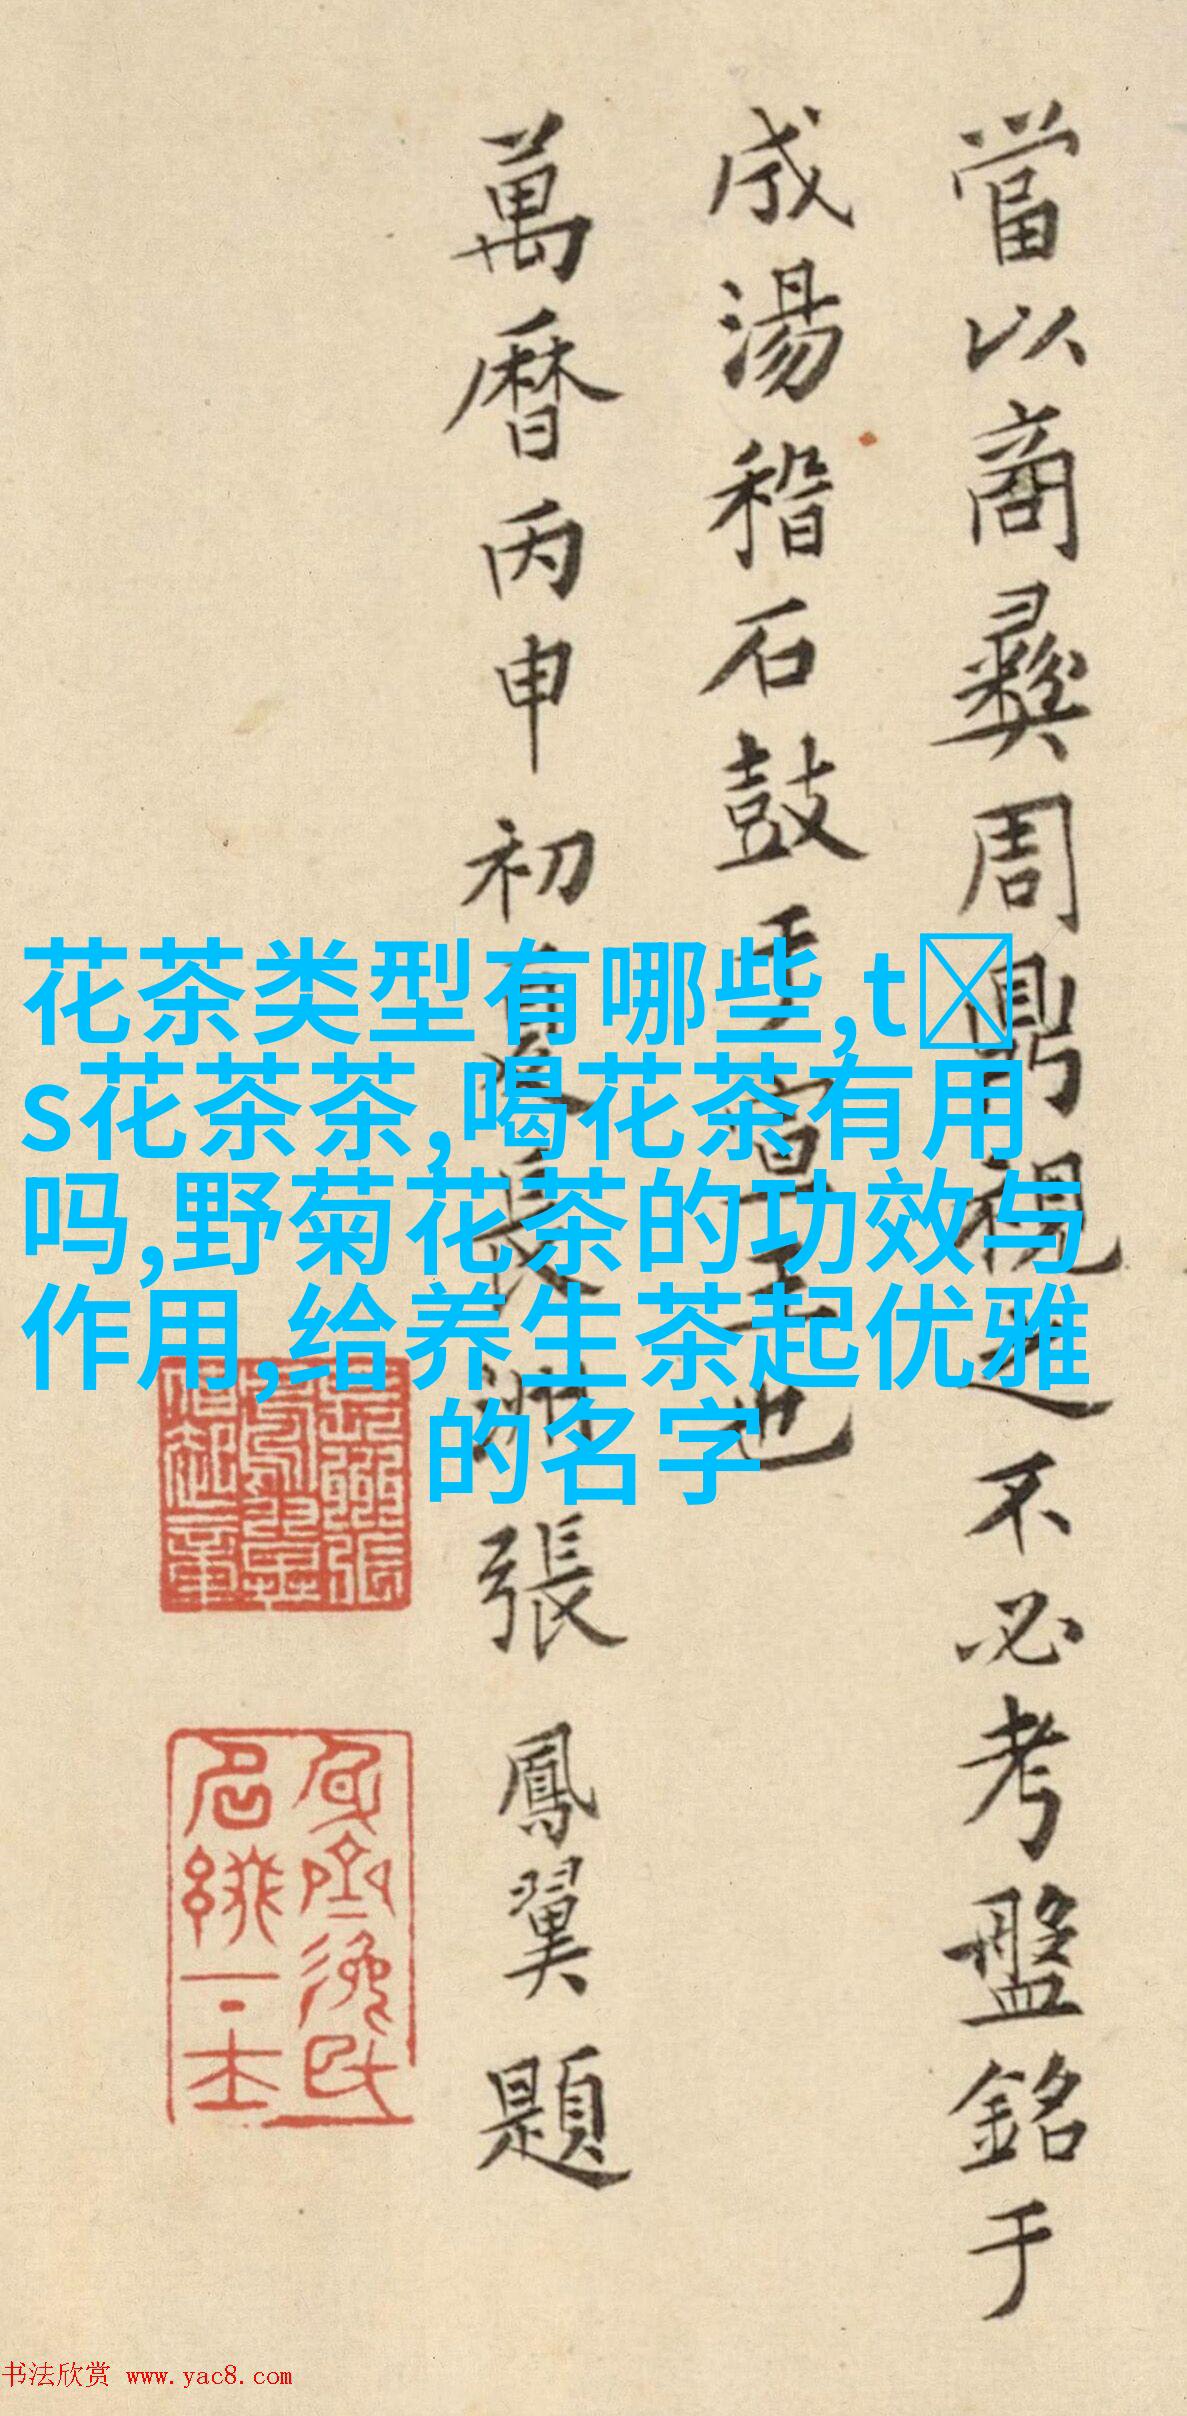 當以商彝周鼎視之不必考盤銘于
成湯稽石鼓于宣王也
萬曆丙申初夏長洲張鳳翼題
花茶类型有哪些,t
s花茶茶,喝花茶有用
吗,野菊花茶的功效与
作用,给养生茶起优雅
的名字
书法欣赏 www.yac8.com